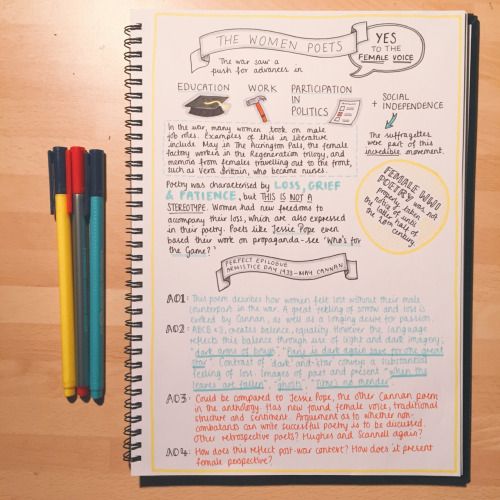 THE WOMEN POETS
YES
TO THE
FEMALE VOICE
The war saw a
push for advances in
EDUCATION
WORK
PARTICIPATION
IN
POLITICS
+ SOCIAL
INDEPENDENCE
The suffragettes
were part of this
incredible movement.
In the war, many women took on male
job roles. Examples of this in literature
include May in The Accrington Pals, the female
factory workers in the Regeneration trilogy, and
memoirs from females travelling out to the front,
such as Vera Brittain, who became nurses.
FEMALE WWI
POETRY was not
properly taken
notice of until
the latter half of
the 20th century
Poetry was characterised by LOSS, GRIEF
& PATIENCE, but THIS IS NOT A
STEREOTYPE. Women had new freedoms to
accompany their loss, which are also expressed
in their poetry. Poets like Jessie Pope even
based their work on propaganda - see 'Who's for
the Game?'
PERFECT EPILOGUE
ARMISTICE DAY 1933 - MAY CANNAN
AO1: This poem describes how women felt lost without their male
counterparts in the war. A great feeling of sorrow and loss is
evoked by Cannan, as well as a longing desire for passion.
AO2: ABCB x3, creates balance, equality. However the language
reflects this balance through use of light and dark imagery,
"dark arms of boys", "Paris is dark again save for one great
star". Contrast of 'dark' and 'star' convey a substantial
feeling of loss. Images of past and present "when the
leaves are fallen", "ghosts", "time's no mender"
AO3: Could be compared to Jessie Pope, the other Cannan poem
in the anthology. Has new found female voice, traditional
structure and sentiment. Arguement as to whether non-
combatants can write successful poetry is to be discussed.
Other retrospective poets? Hughes and Scannell again?
AO4: How does this reflect post-war context? How does it present
female perspective?